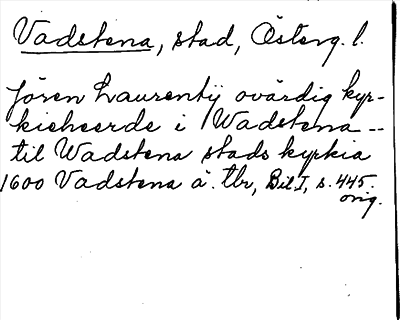 Vadstena, stad, Österg. l.
Jören Laurentÿ ovärdig kyr-
kieheerde i Wadstena --
til Wadstena stads kyrkia
1600 Vadstena ä. tbr, Bil I, s. 445.
orig.